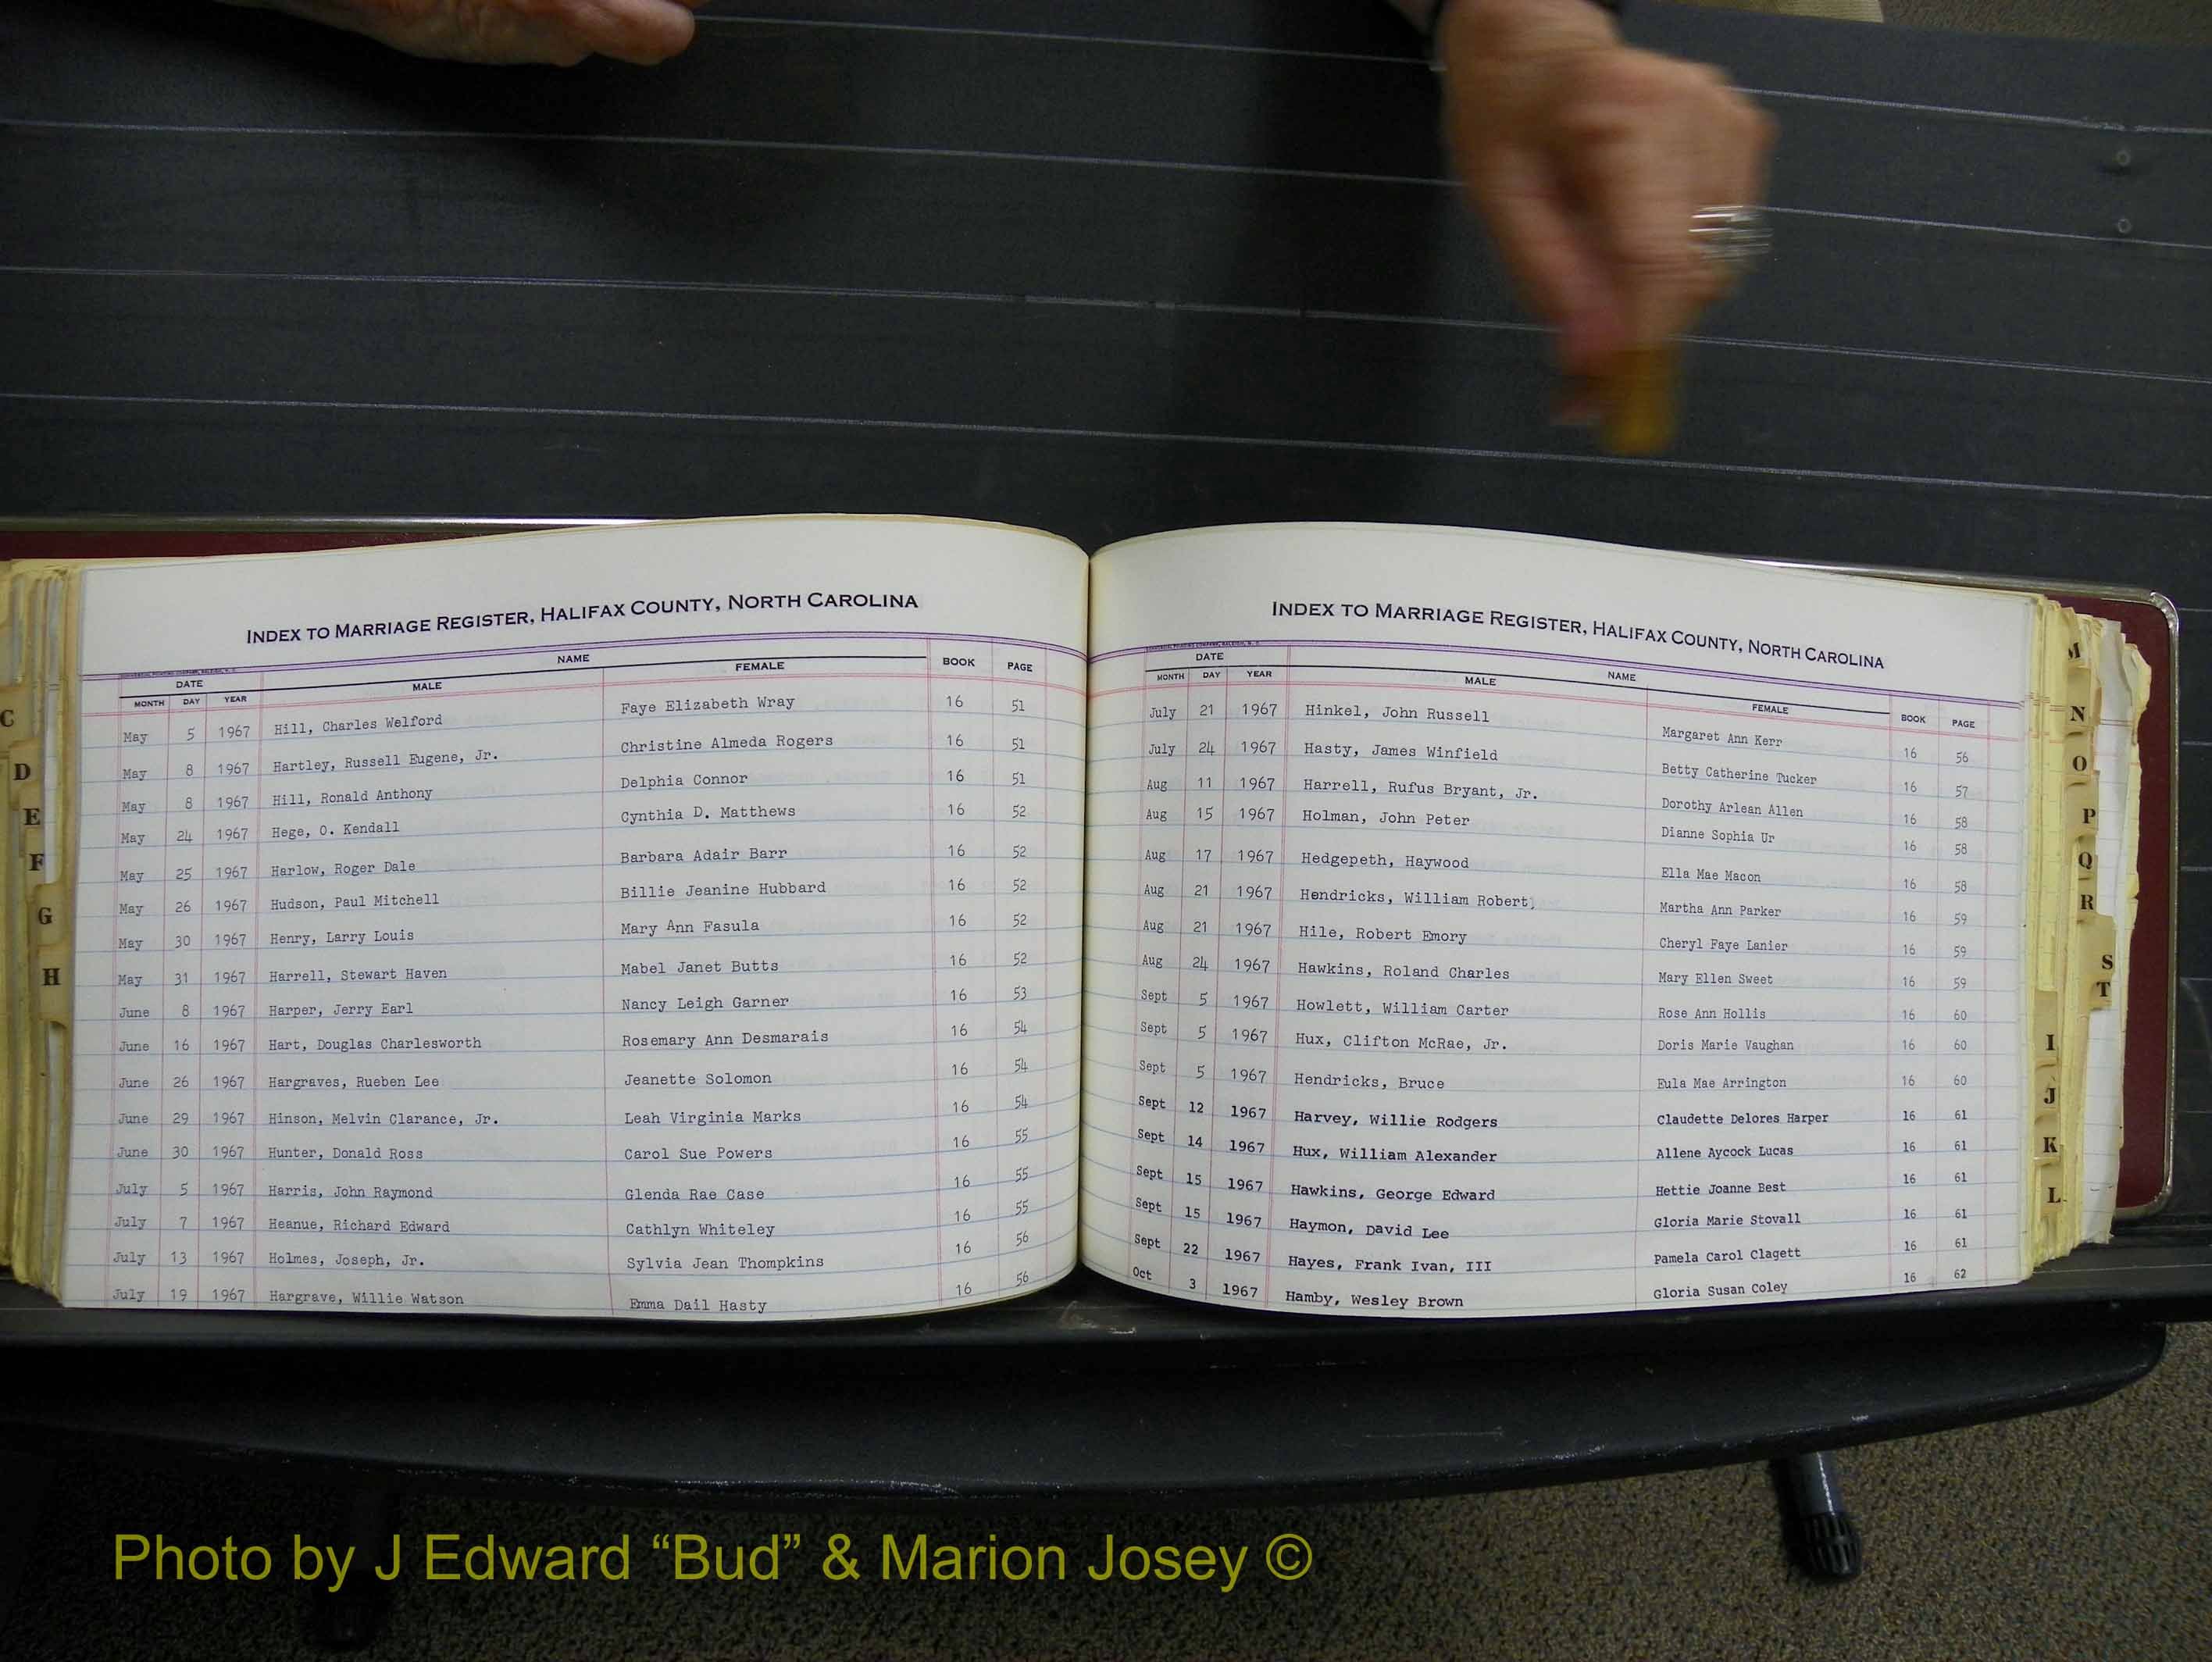 INDEX TO MARRIAGE REGISTER, HALIFAX COUNTY, NORTH CAROLINA
DATE NAME BOOK PAGE
MONTH DAY YEAR MALE FEMALE
May 5 1967 Hill, Charles Welford Faye Elizabeth Wray 16 51
May 8 1967 Hartley, Russell Eugene, Jr. Christine Almeda Rogers 16 51
May 8 1967 Hill, Ronald Anthony Delphia Connor 16 51
May 24 1967 Hege, O. Kendall Cynthia D. Matthews 16 52
May 25 1967 Harlow, Roger Dale Barbara Adair Barr 16 52
May 26 1967 Hudson, Paul Mitchell Billie Jeanine Hubbard 16 52
May 30 1967 Henry, Larry Louis Mary Ann Fasula 16 52
May 31 1967 Harrell, Stewart Haven Mabel Janet Butts 16 52
June 8 1967 Harper, Jerry Earl Nancy Leigh Garner 16 53
June 16 1967 Hart, Douglas Charlesworth Rosemary Ann Desmarais 16 54
June 26 1967 Hargraves, Rueben Lee Jeanette Solomon 16 54
June 29 1967 Hinson, Melvin Clarance, Jr. Leah Virginia Marks 16 54
June 30 1967 Hunter, Donald Ross Carol Sue Powers 16 55
July 5 1967 Harris, John Raymond Glenda Rae Case 16 55
July 7 1967 Heanue, Richard Edward Cathlyn Whiteley 16 55
July 13 1967 Holmes, Joseph, Jr. Sylvia Jean Thompkins 16 56
July 19 1967 Hargrave, Willie Watson Emma Dail Hasty 16 56
INDEX TO MARRIAGE REGISTER, HALIFAX COUNTY, NORTH CAROLINA
DATE NAME
MONTH DAY YEAR MALE FEMALE BOOK PAGE
July 21 1967 Hinkel, John Russell Margaret Ann Kerr 16 56
July 24 1967 Hasty, James Winfield Betty Catherine Tucker 16 57
Aug 11 1967 Harrell, Rufus Bryant, Jr. Dorothy Arlean Allen 16 58
Aug 15 1967 Holman, John Peter Dianne Sophia Ur 16 58
Aug 17 1967 Hedgepeth, Haywood Ella Mae Macon 16 58
Aug 21 1967 Hendricks, William Robert, Martha Ann Parker 16 59
Aug 21 1967 Hile, Robert Emory Cheryl Faye Lanier 16 59
Aug 24 1967 Hawkins, Roland Charles Mary Ellen Sweet 16 59
Sept 5 1967 Howlett, William Carter Rose Ann Hollis 16 60
Sept 5 1967 Hux, Clifton McRae, Jr. Doris Marie Vaughan 16 60
Sept 5 1967 Hendricks, Bruce Eula Mae Arrington 16 60
Sept 12 1967 Harvey, Willie Rodgers Claudette Delores Harper 16 61
Sept 14 1967 Hux, William Alexander Allene Aycock Lucas 16 61
Sept 15 1967 Hawkins, George Edward Hettie Joanne Best 16 61
Sept 15 1967 Haymon, David Lee Gloria Marie Stovall 16 61
Sept 22 1967 Hayes, Frank Ivan, III Pamela Carol Clagett 16 61
Oct 3 1967 Hamby, Wesley Brown Gloria Susan Coley 16 62
C
D
E
F
G
H
M
N
O
P
Q
R
S
T
I
J
K
L
Photo by J Edward “Bud” & Marion Josey ©